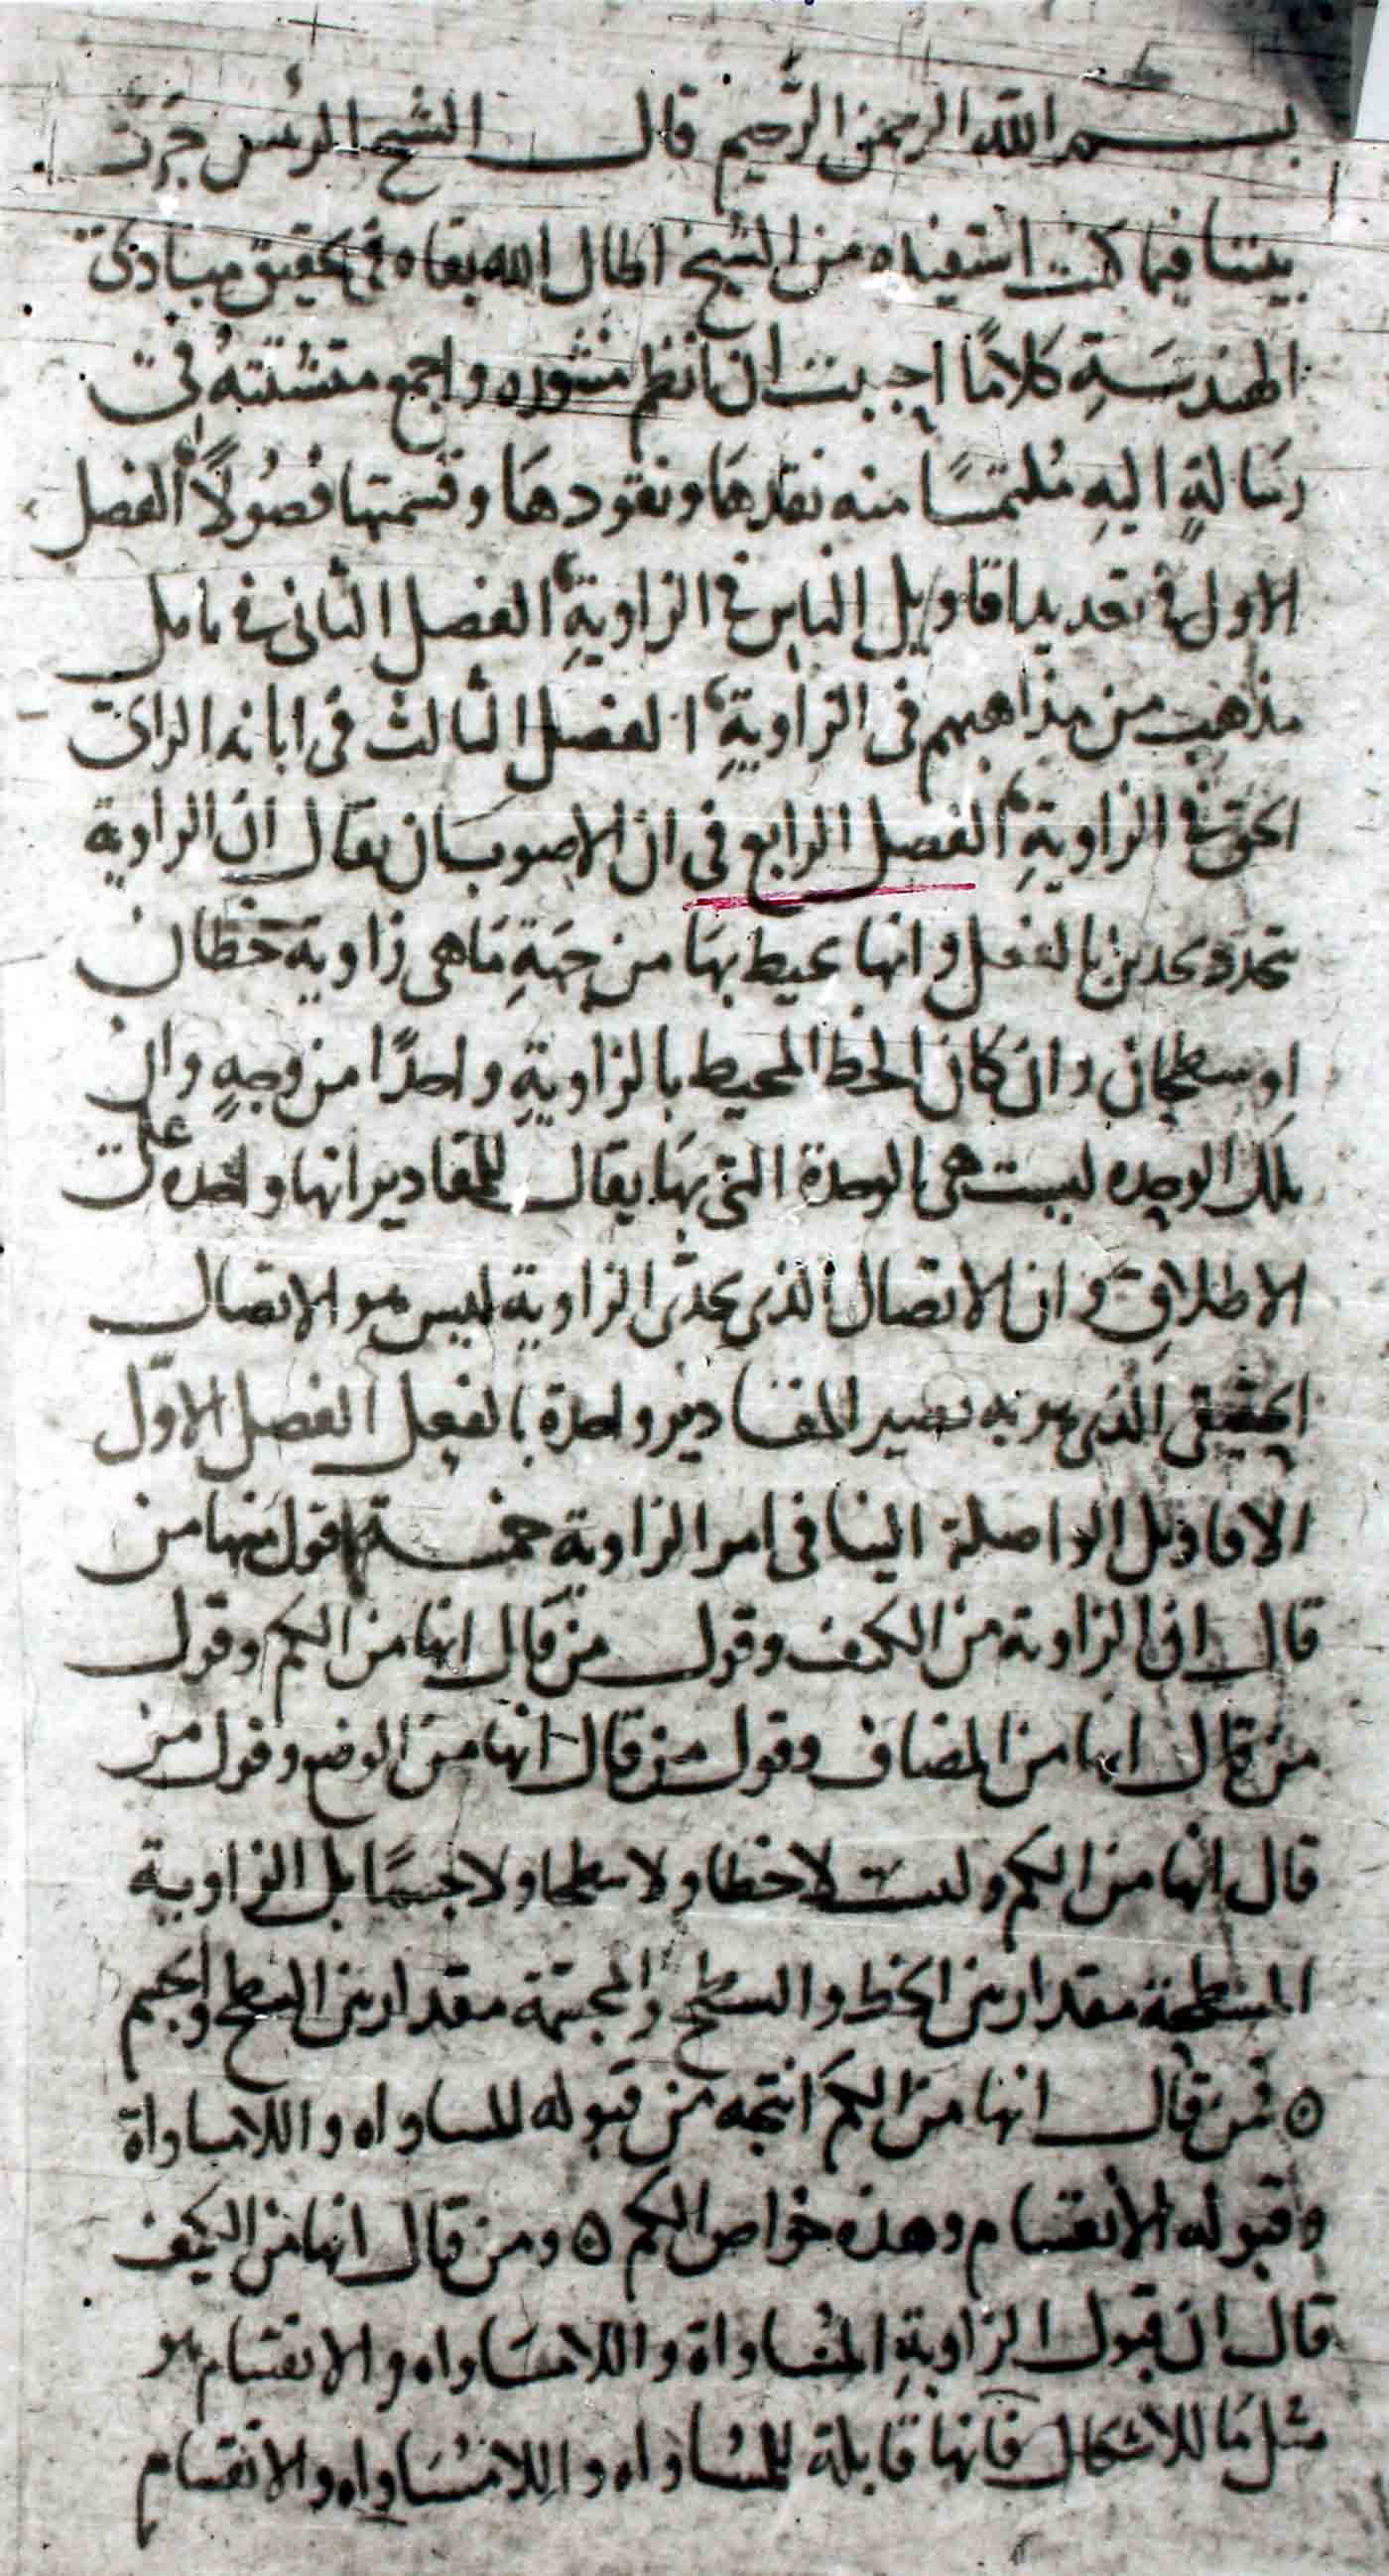 بسم الله الرحمن الرحيم قال الشيخ الرئيس جرت
بيننا فيما كنت استفيده من الشيخ اطال الله بقاه في تحقيق مبادى
الهندسةِ كلامًا احببت ان انظم منثوره واجمع متشتتهُ في
رسالةٍ اليهِ مُلتمسًا منه نقدهَا ونقودهَا وقسمتها فصُولًا الفصل
الاول في تعديد اقاويل الناس في الزاويةِ الفصل الثاني في تامل
مذهب من مذاهبهم في الزاويةِ الفصل الثالث في ابانه الراى
الحق في الزاويةِ الفصل الرابع في ان الاصوب ان يقال ان الزاوية
تحد بحدين بالفعل وانها يحيط بهَا من جهةِ مَا هى زاوية خطان
او سطحان وان كان الخط المحيط بالزاويةِ واحدًا من وجهٍ وان
تلك الوحده ليست هى الوحدة التي بهَا يقال للمقادير انها واحده على
الاطلاقِ وان الاتصال الذى يحد الزاوية ليس هو الاتصال
الحقيقى الذى هو به تصير المقادير واحدة بالفعل الفصل الاوّل
الاقاويل الواصلة الينا في امر الزاوية خمسة قول منها من
قال ان الزاوية من الكيف وقول من قال انها من الكم وقول
من قال انها من المضاف وقول من قال انها من الوضع وقول من
قال انها من الكم وليست لا خطا ولا سطحا ولا جسمًا بل الزاوية
المسطحة مقدار بين الخط والسطح والمجسمة مقدار بين السطح والجسم
ه فمن قال انها من الكم انتجه من قبوله للمساواه واللامساواة
وقبوله الانقسام وهذه خواص الكم ه ومن قال انها من الكيف
قال ان قبول الزاويةِ المُساواة واللامسَاواه والانقسام هو
مثل مَا للاشكال فانها قابلة للمسُاواه واللامسَاواه والانقسام